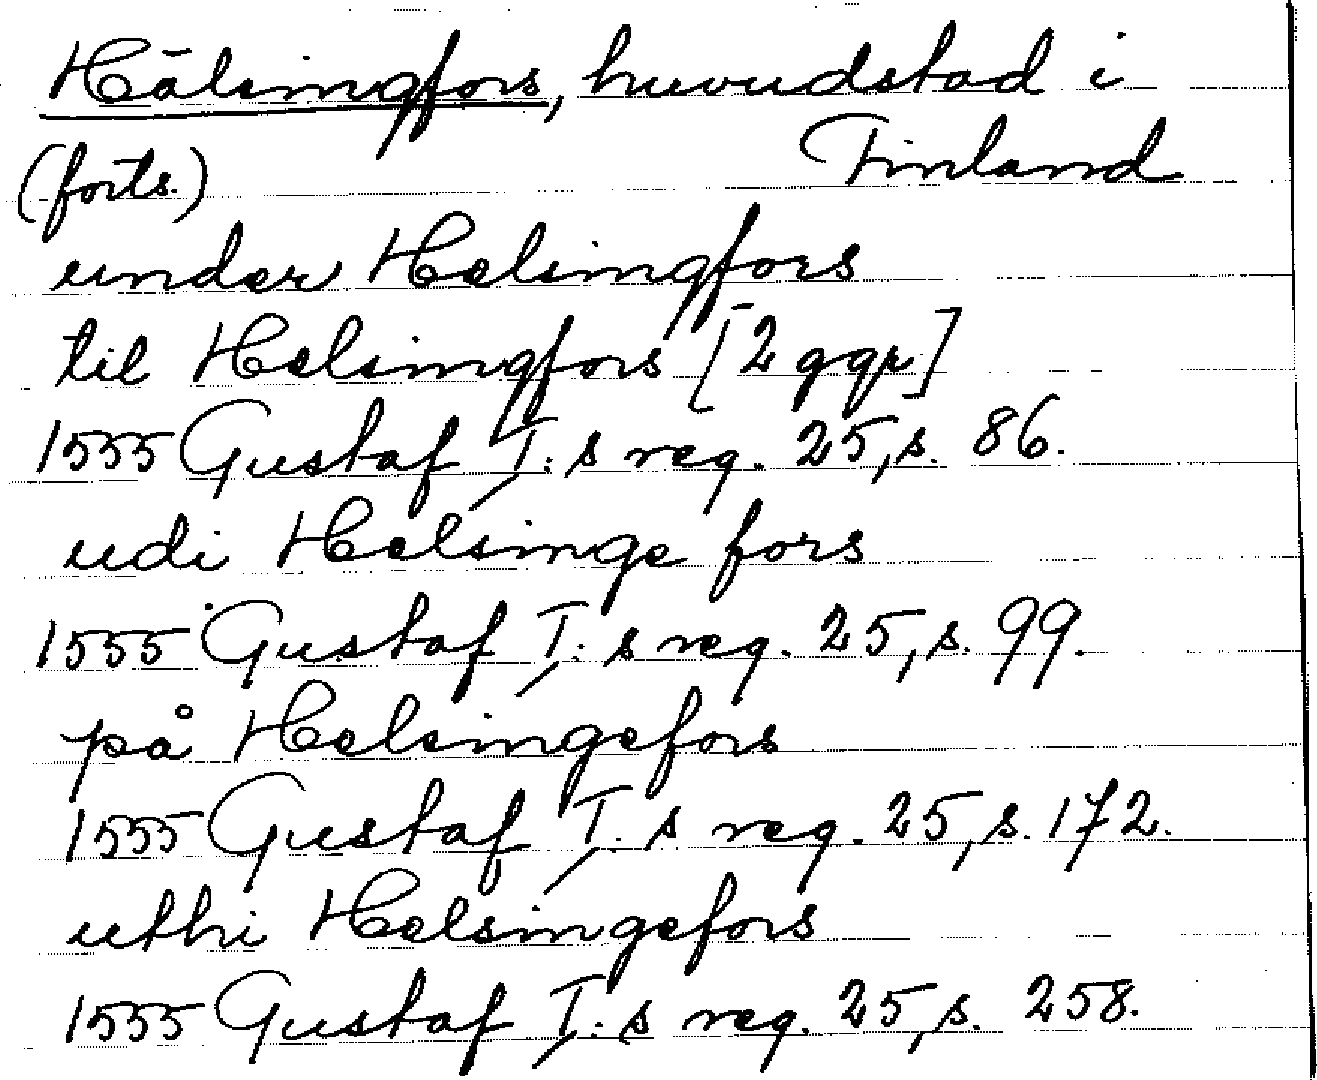 Hälsingfors, huvudstad i
Finland
(forts.)
under Helsingfors
til Helsingfors [2 ggr]
1555 Gustaf I:s reg. 25, s. 86.
udi Helsinge fors
1555 Gustaf I:s reg. 25, s. 99.
på Helsingefors
1555 Gustaf I:s reg. 25, s. 172.
uthi Helsingefors
1555 Gustaf I:s reg. 25, s. 258.